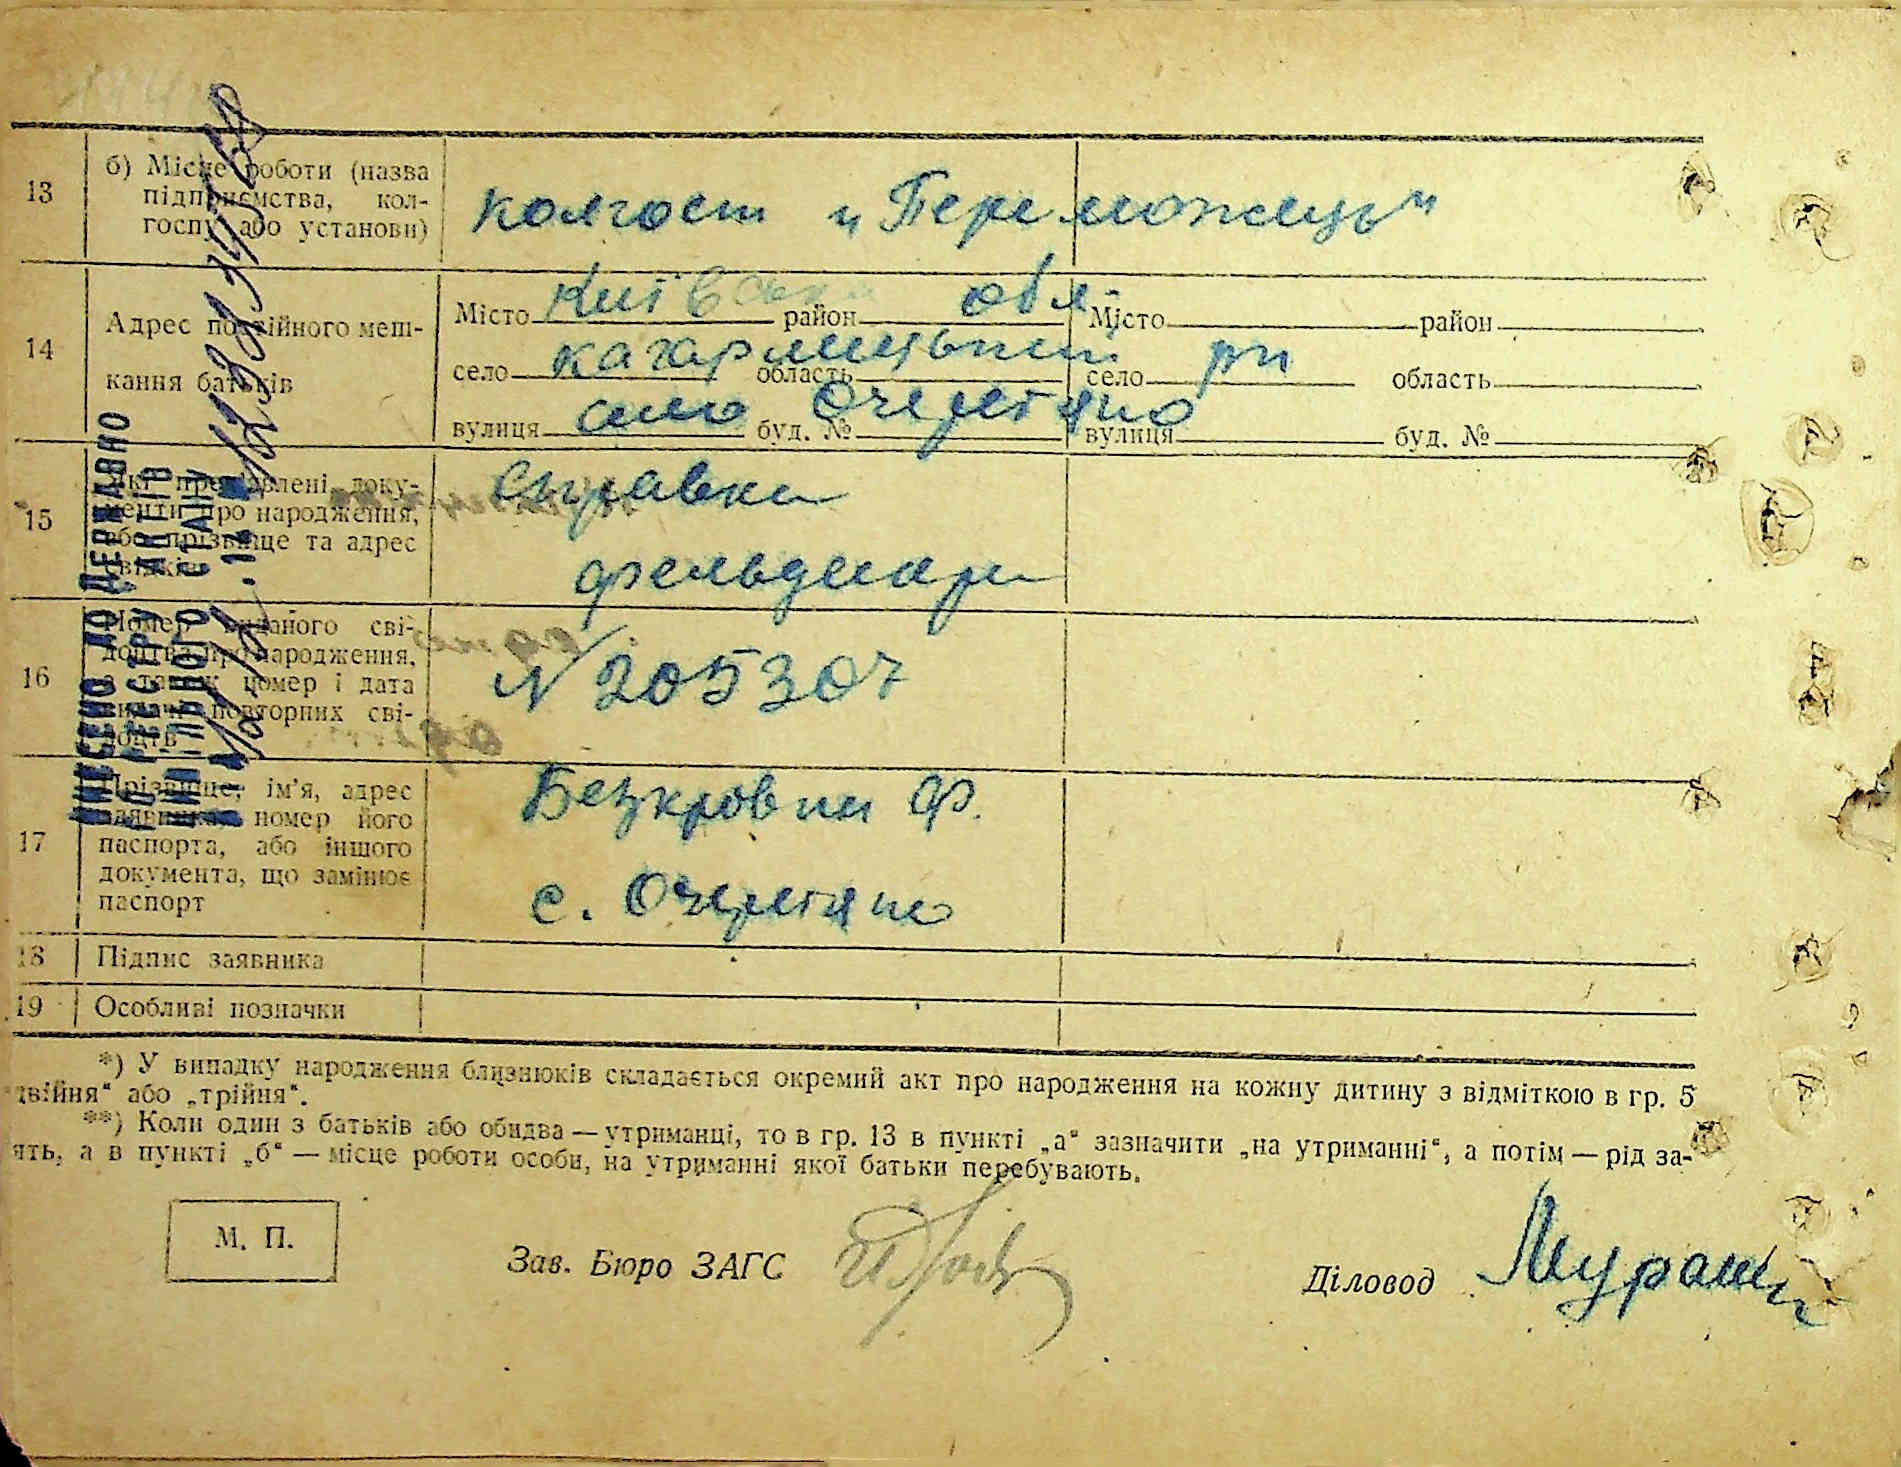 13
б) Місце роботи (назва
підприємства, кол-
госпу або установи)
колгосп „Переможець"
14
Адрес постійного меш-
кання батьків
Місто Київська район обл. Місто район
село кагарлицький область село рн область
вулиця село буд. № Очеретяно вулиця буд. №
15
Які пред'явлені доку-
менти про народження,
або прізвище та адрес
свідків
Справка
фельдшера
16
Номер виданого сві-
доцтва про народження,
а також номер і дата
видачі повторних сві-
доцтв
№ 205307
17
Прізвище, ім'я, адрес
заявника, номер його
паспорта, або іншого
документа, що замінює
паспорт
Безкровни Ф.
с. Очеретяно
18 Підпис заявника
19 Особливі позначки
ВНЕСЕНО ДО ДЕРЖАВНО
ГО РЕЄСТРУ АКТІВ
ЦИВІЛЬНОГО СТАНУ
*) У випадку народження близнюків складається окремий акт про народження на кожну дитину з відміткою в гр. 5
двійня" або „трійня".
**) Коли один з батьків або обидва — утриманці, то в гр. 13 в пункті „а" зазначити „на утриманні", а потім — рід за-
ять, а в пункті „б" — місце роботи особи, на утриманні якої батьки перебувають.
М. П.
Зав. Бюро ЗАГС
Діловод Мураш